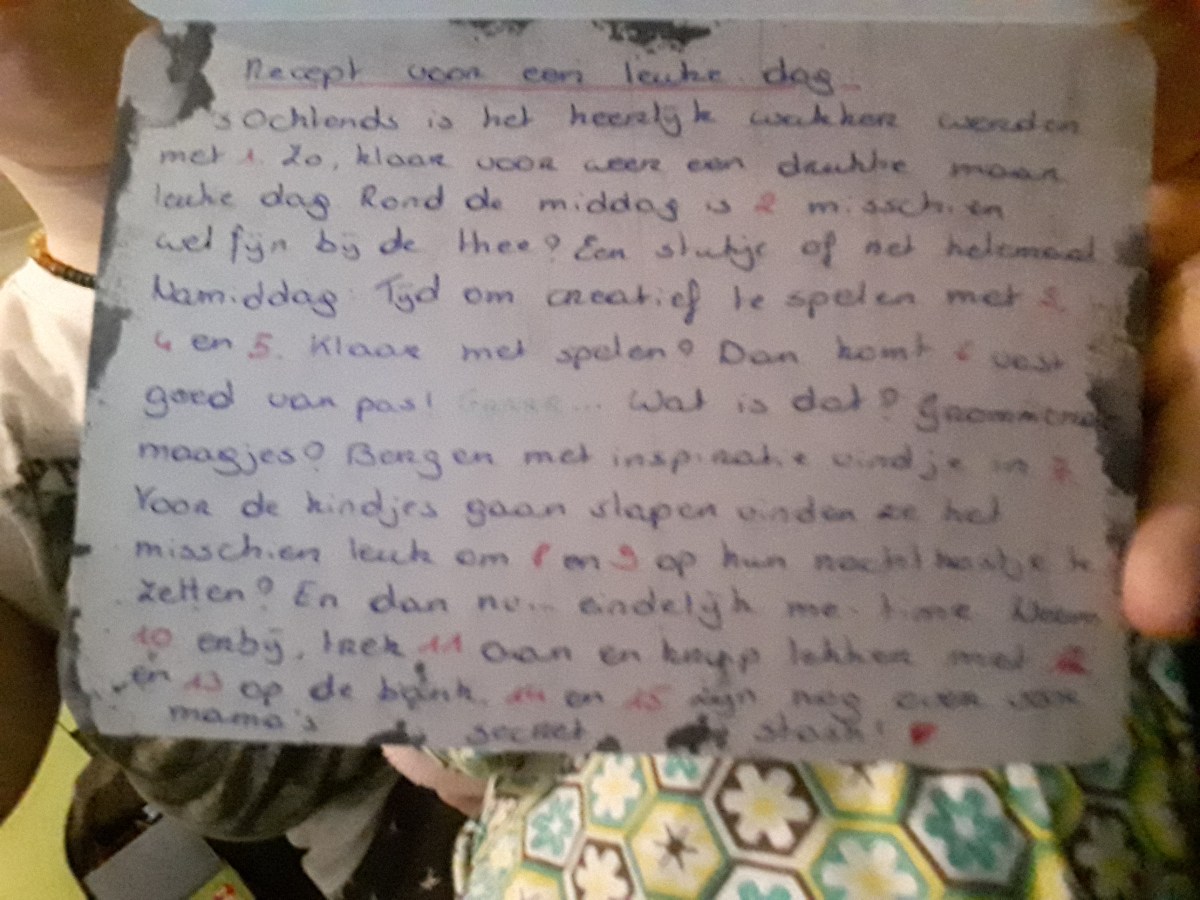 Recept voor een leuke dag
's Ochtends is het heerlijk wakker worden
met 1. Zo, klaar voor weer een drukke maar
leuke dag Rond de middag is 2 misschien
wel fijn bij de thee? Een stukje of net helemaal
Namiddag: Tijd om creatief te spelen met 3
4 en 5. Klaar met spelen? Dan komt 6 vast
goed van pas! ... Wat is dat? Grommende
maagjes? Bergen met inspiratie vind je in 7
Voor de kindjes gaan slapen vinden ze het
misschien leuk om 8 en 9 op hun nachtkastje te
zetten? En dan nu... eindelijk me-time Neem
10 erbij, trek 11 aan en kruip lekker met 12
en 13 op de bank. 14 en 15 zijn nog even voor
mama's secret stash!